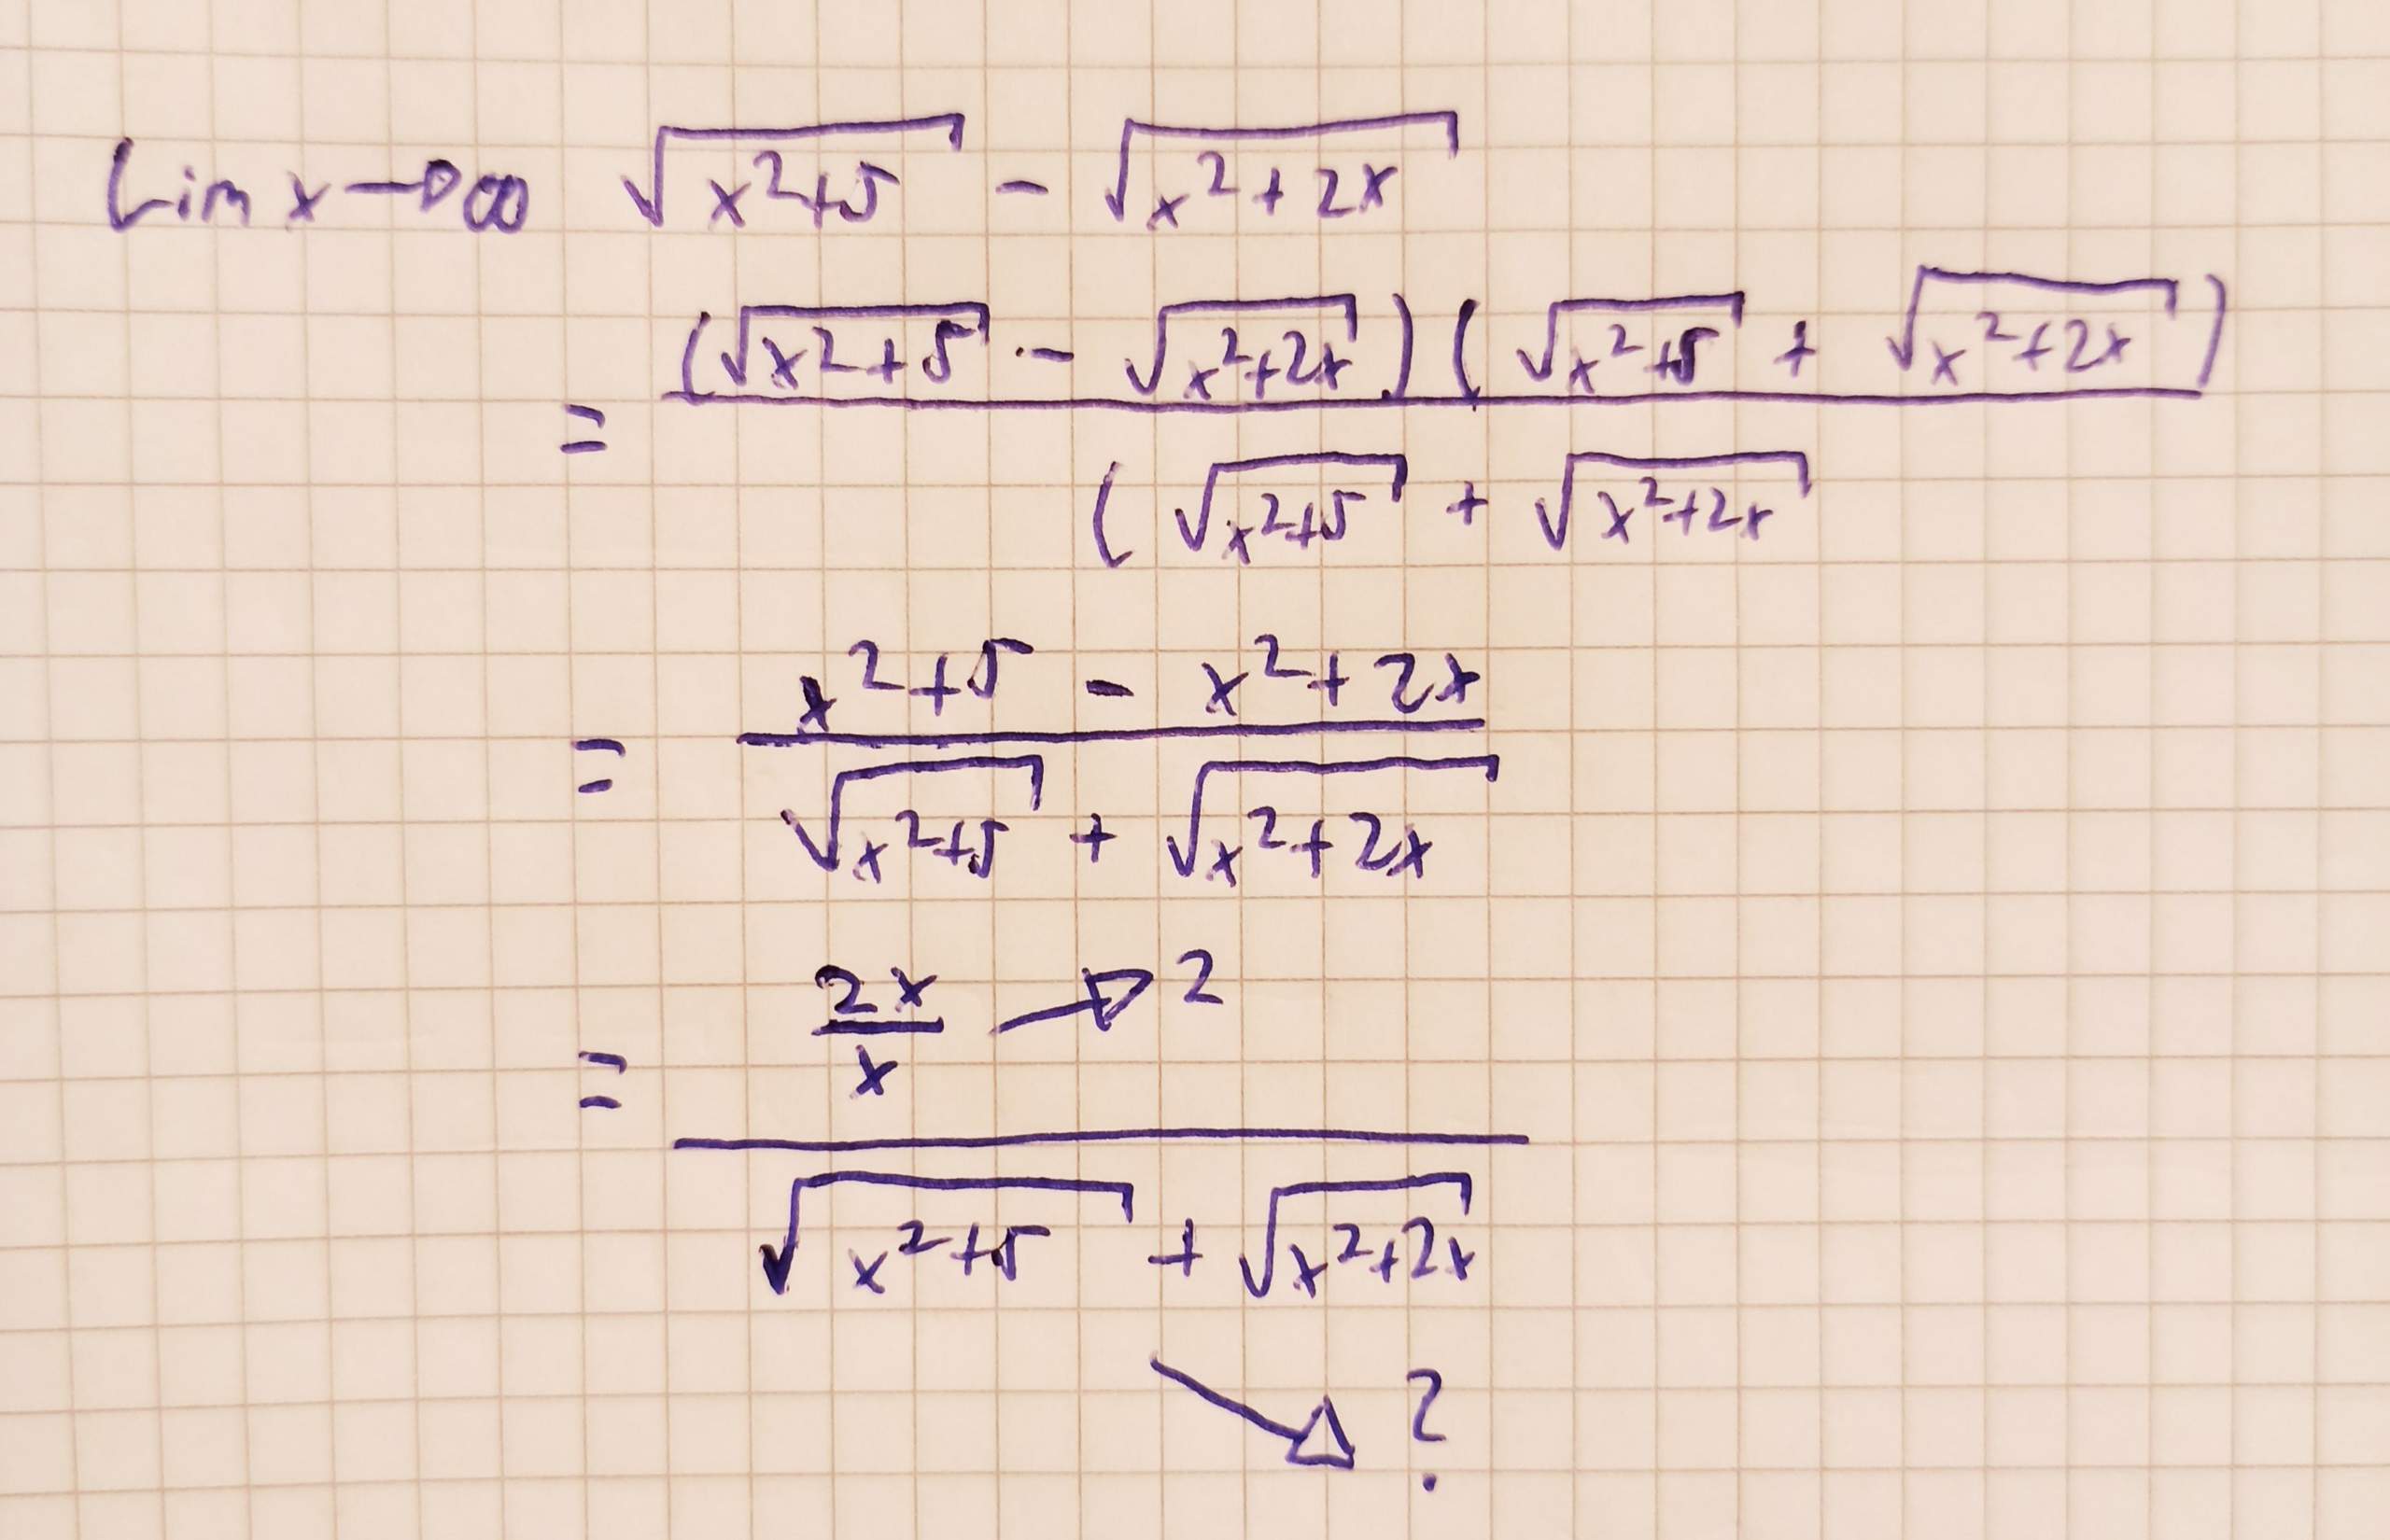 Lim x→∞ √(x²+5) - √(x²+2x)
= (√(x²+5) - √(x²+2x))(√(x²+5) + √(x²+2x))
(√(x²+5) + √(x²+2x)
= x²+5 - x²+2x
√(x²+5) + √(x²+2x)
= 2x/x → 2
√(x²+5) + √(x²+2x)
→ ?